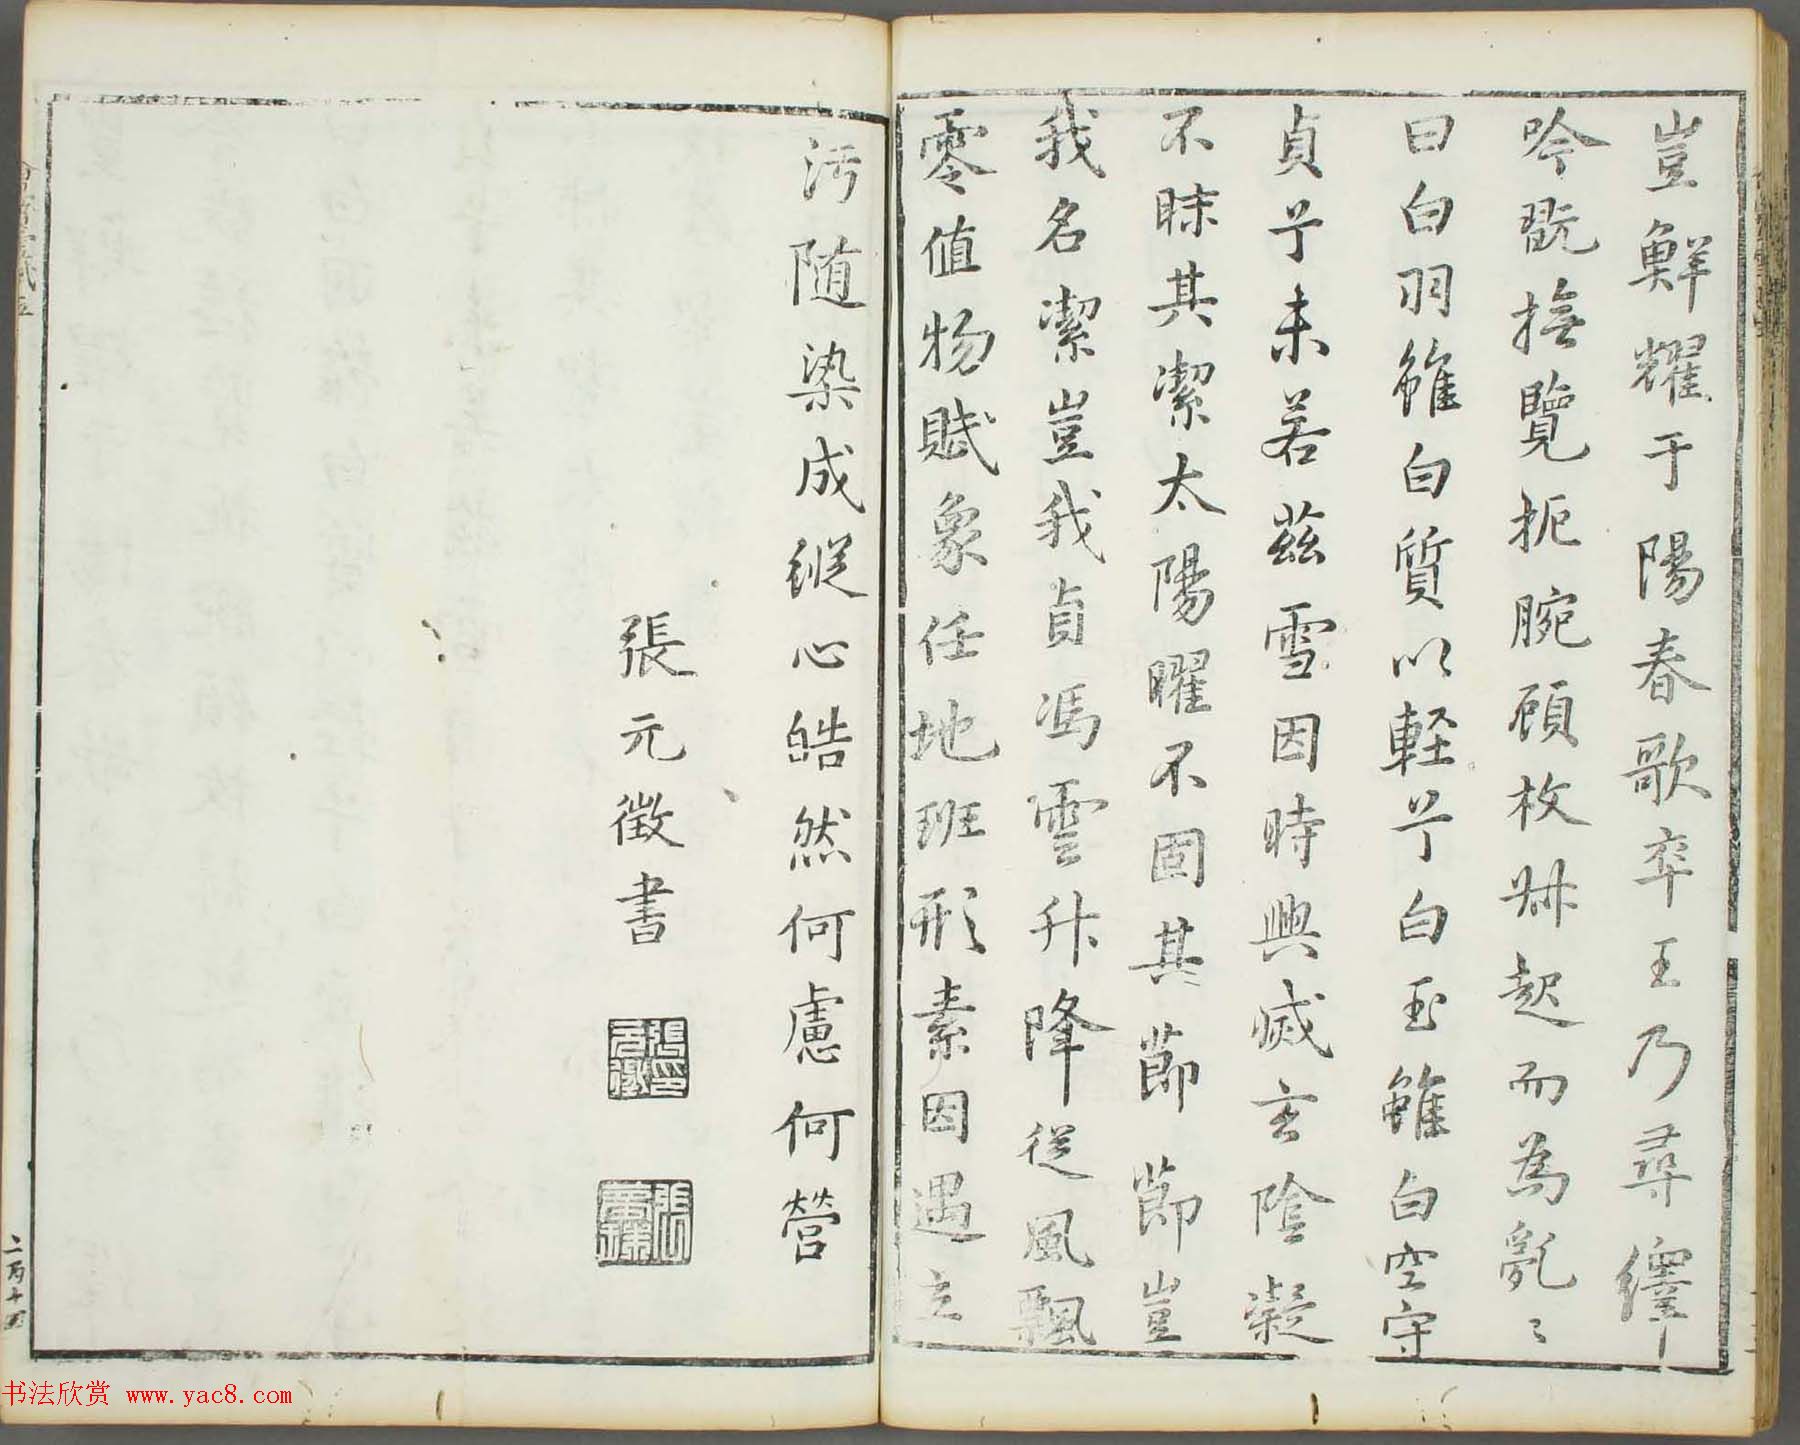 豈鮮耀于陽春歌卒王乃尋繹
吟翫撫覽扼腕顧枚叔起而為亂〻
曰白羽雖白質以軽兮白玉雖白空守
貞兮未若茲雪因時興滅玄陰凝
不昧其潔太陽曜不固其節節豈
我名潔豈我貞馮雲升降從風飄
零值物賦象任地班形素因遇立
污随染成縱心皓然何慮何營
張元徵書
二丙十四
书法欣赏 www.yac8.com